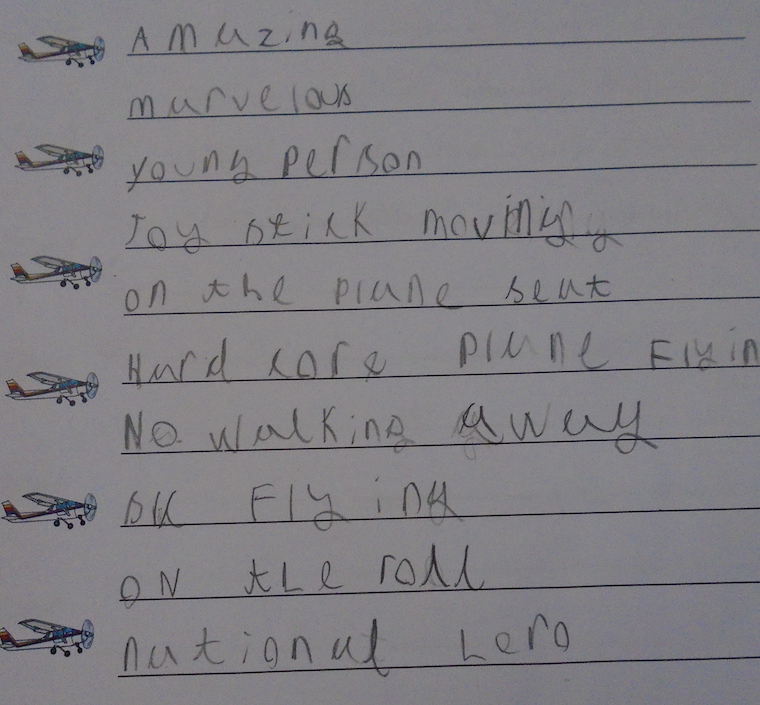 Amazing
marvelous
young person
Joy stick moving
on the plane seat
Hard core plane Flyin
No walking away
Flying
ON the roll
national hero